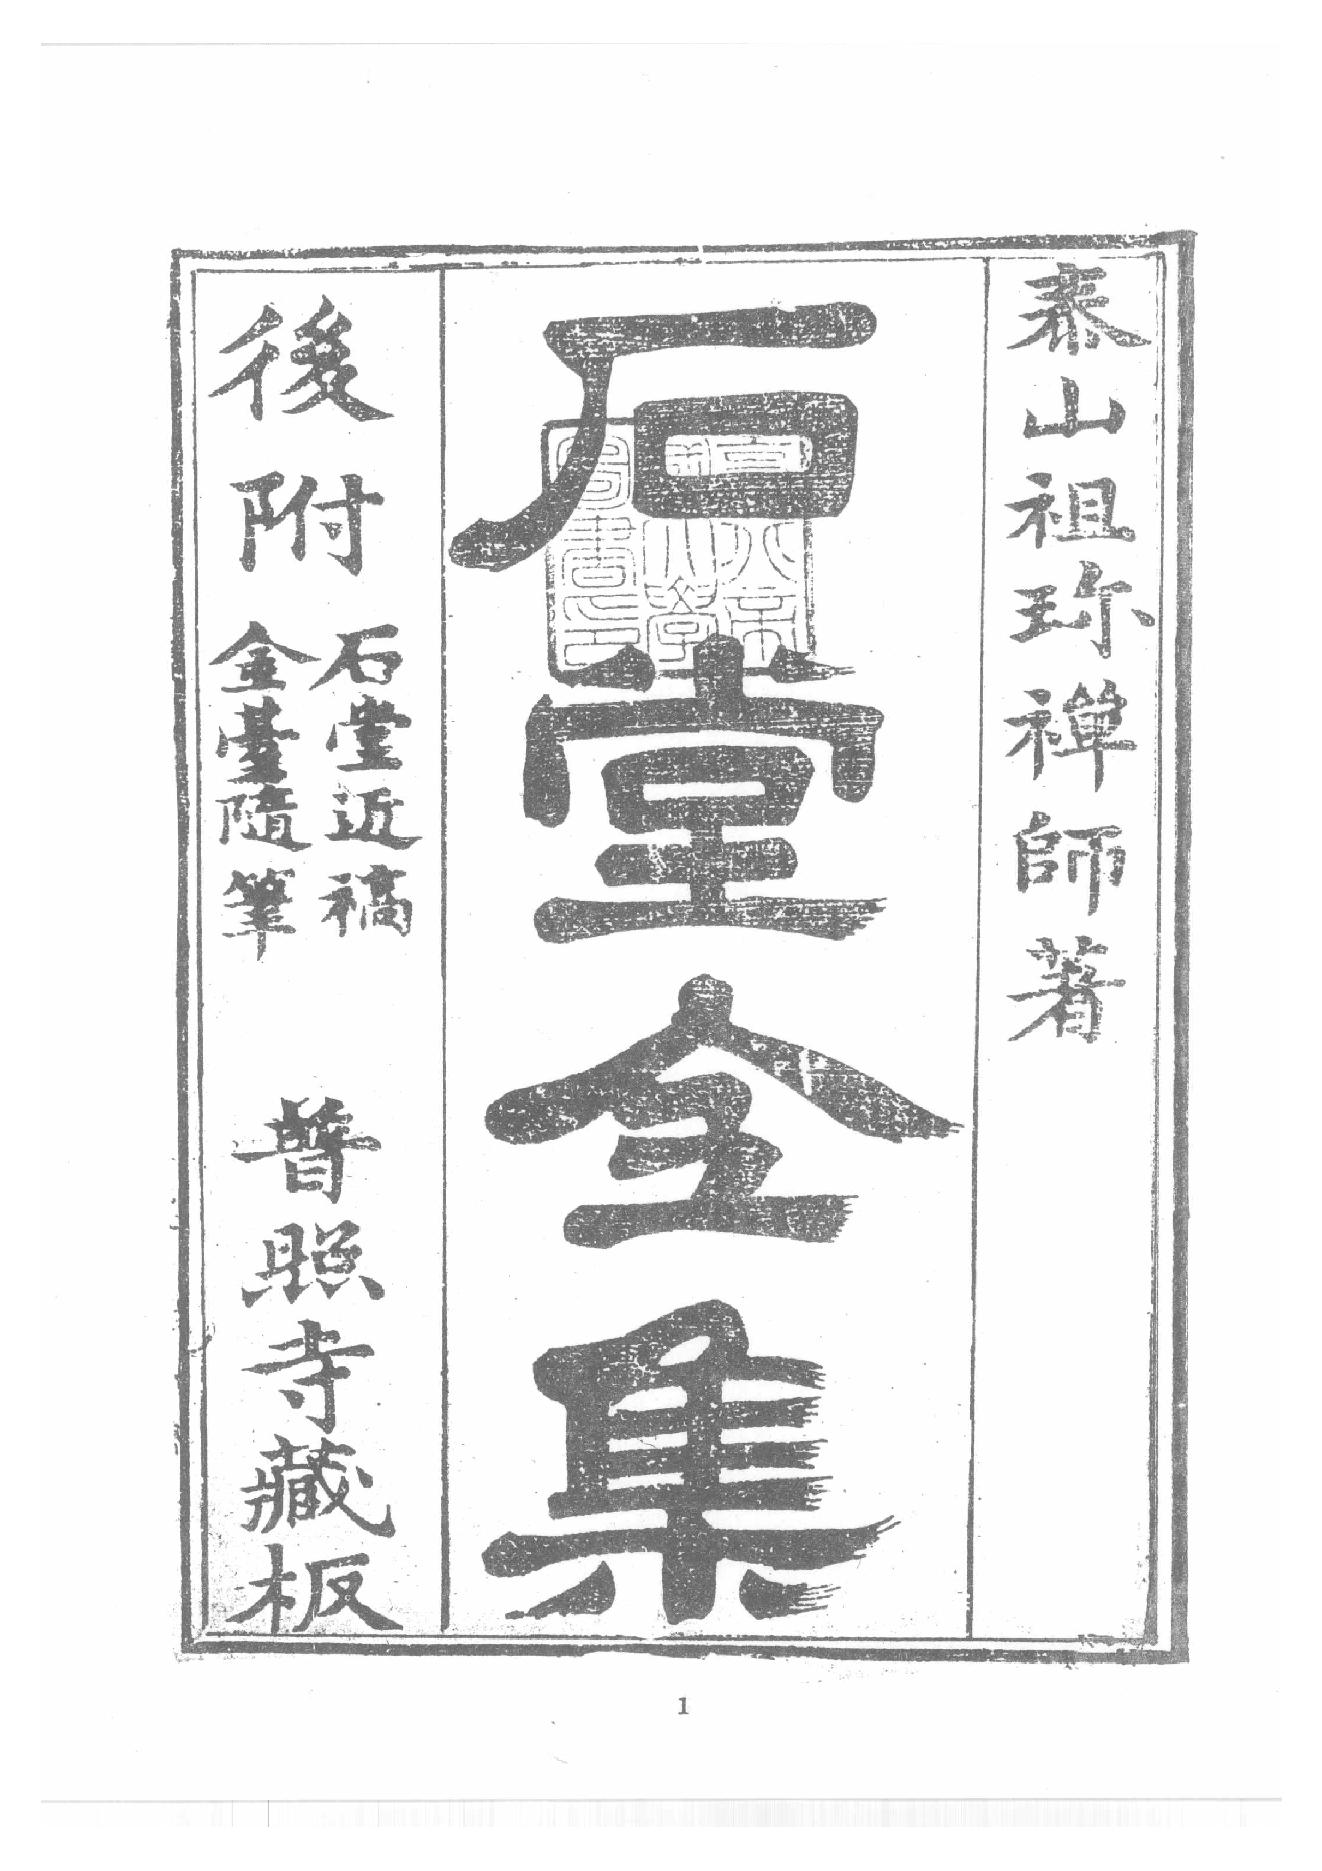 泰山祖珍禪師著
石堂全集
後附
石堂近稿
金臺隨筆
普照寺藏板
1